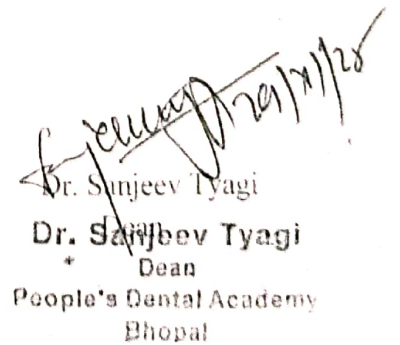 29/XI/25
Dr. Sanjeev Tyagi
Dr. Sanjeev Tyagi
Dean
People's Dental Academy
Bhopal